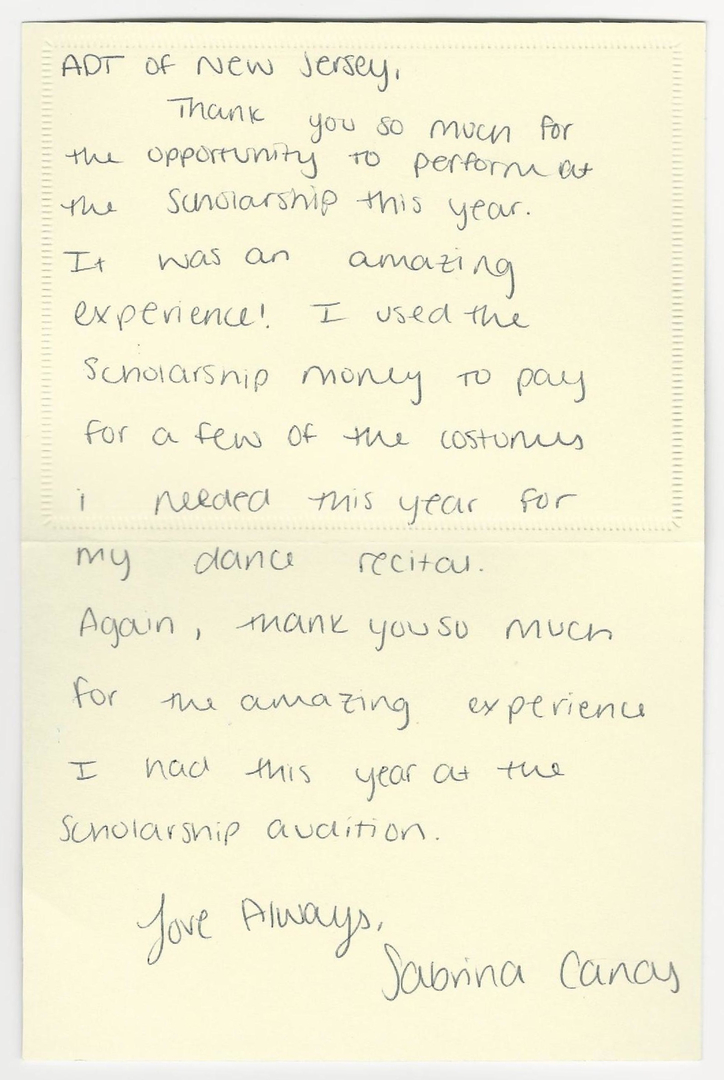 ADT of New Jersey,
Thank you so much for
the opportunity to perform at
the Scholarship this year.
It was an amazing
experience! I used the
Scholarship money to pay
for a few of the costumes
i needed this year for
my dance recital.
Again, thank you so much
for the amazing experience
I had this year at the
Scholarship audition.
Love Always,
Sabrina Canas